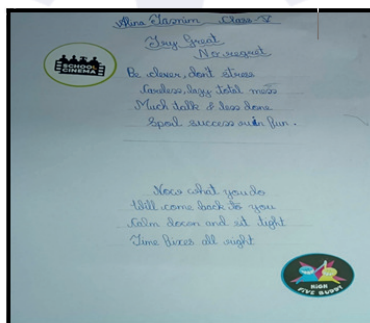 Alina Tasnim Class-V
Try Great
No regret
SCHOOL
CINEMA
Be clever, don't stress
Careless, lazy total mess
Much talk & less done
Spoil success ruin fun.
Now what you do
Will come back to you
Calm down and sit tight
Time fixes all right
HIGH
FIVE BUDDY